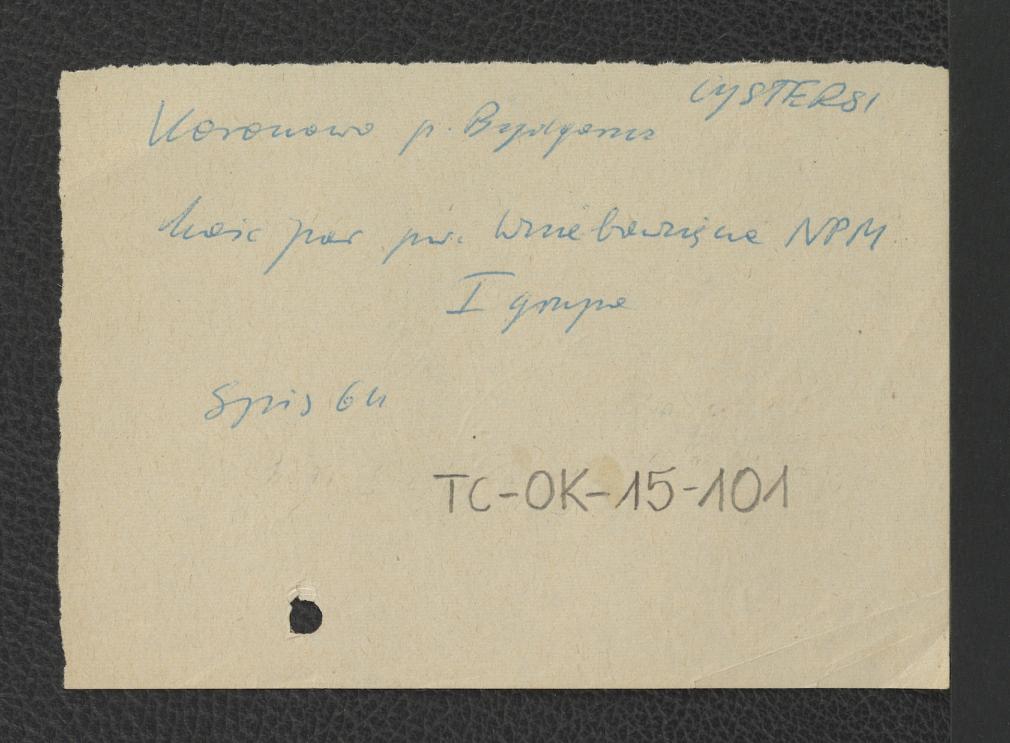 CYSTERSI
Koronowo p. Bydgoszcz
kośc par pw. Wniebowzięcia NPM
I grupa
Spis 64
TC-OK-15-101